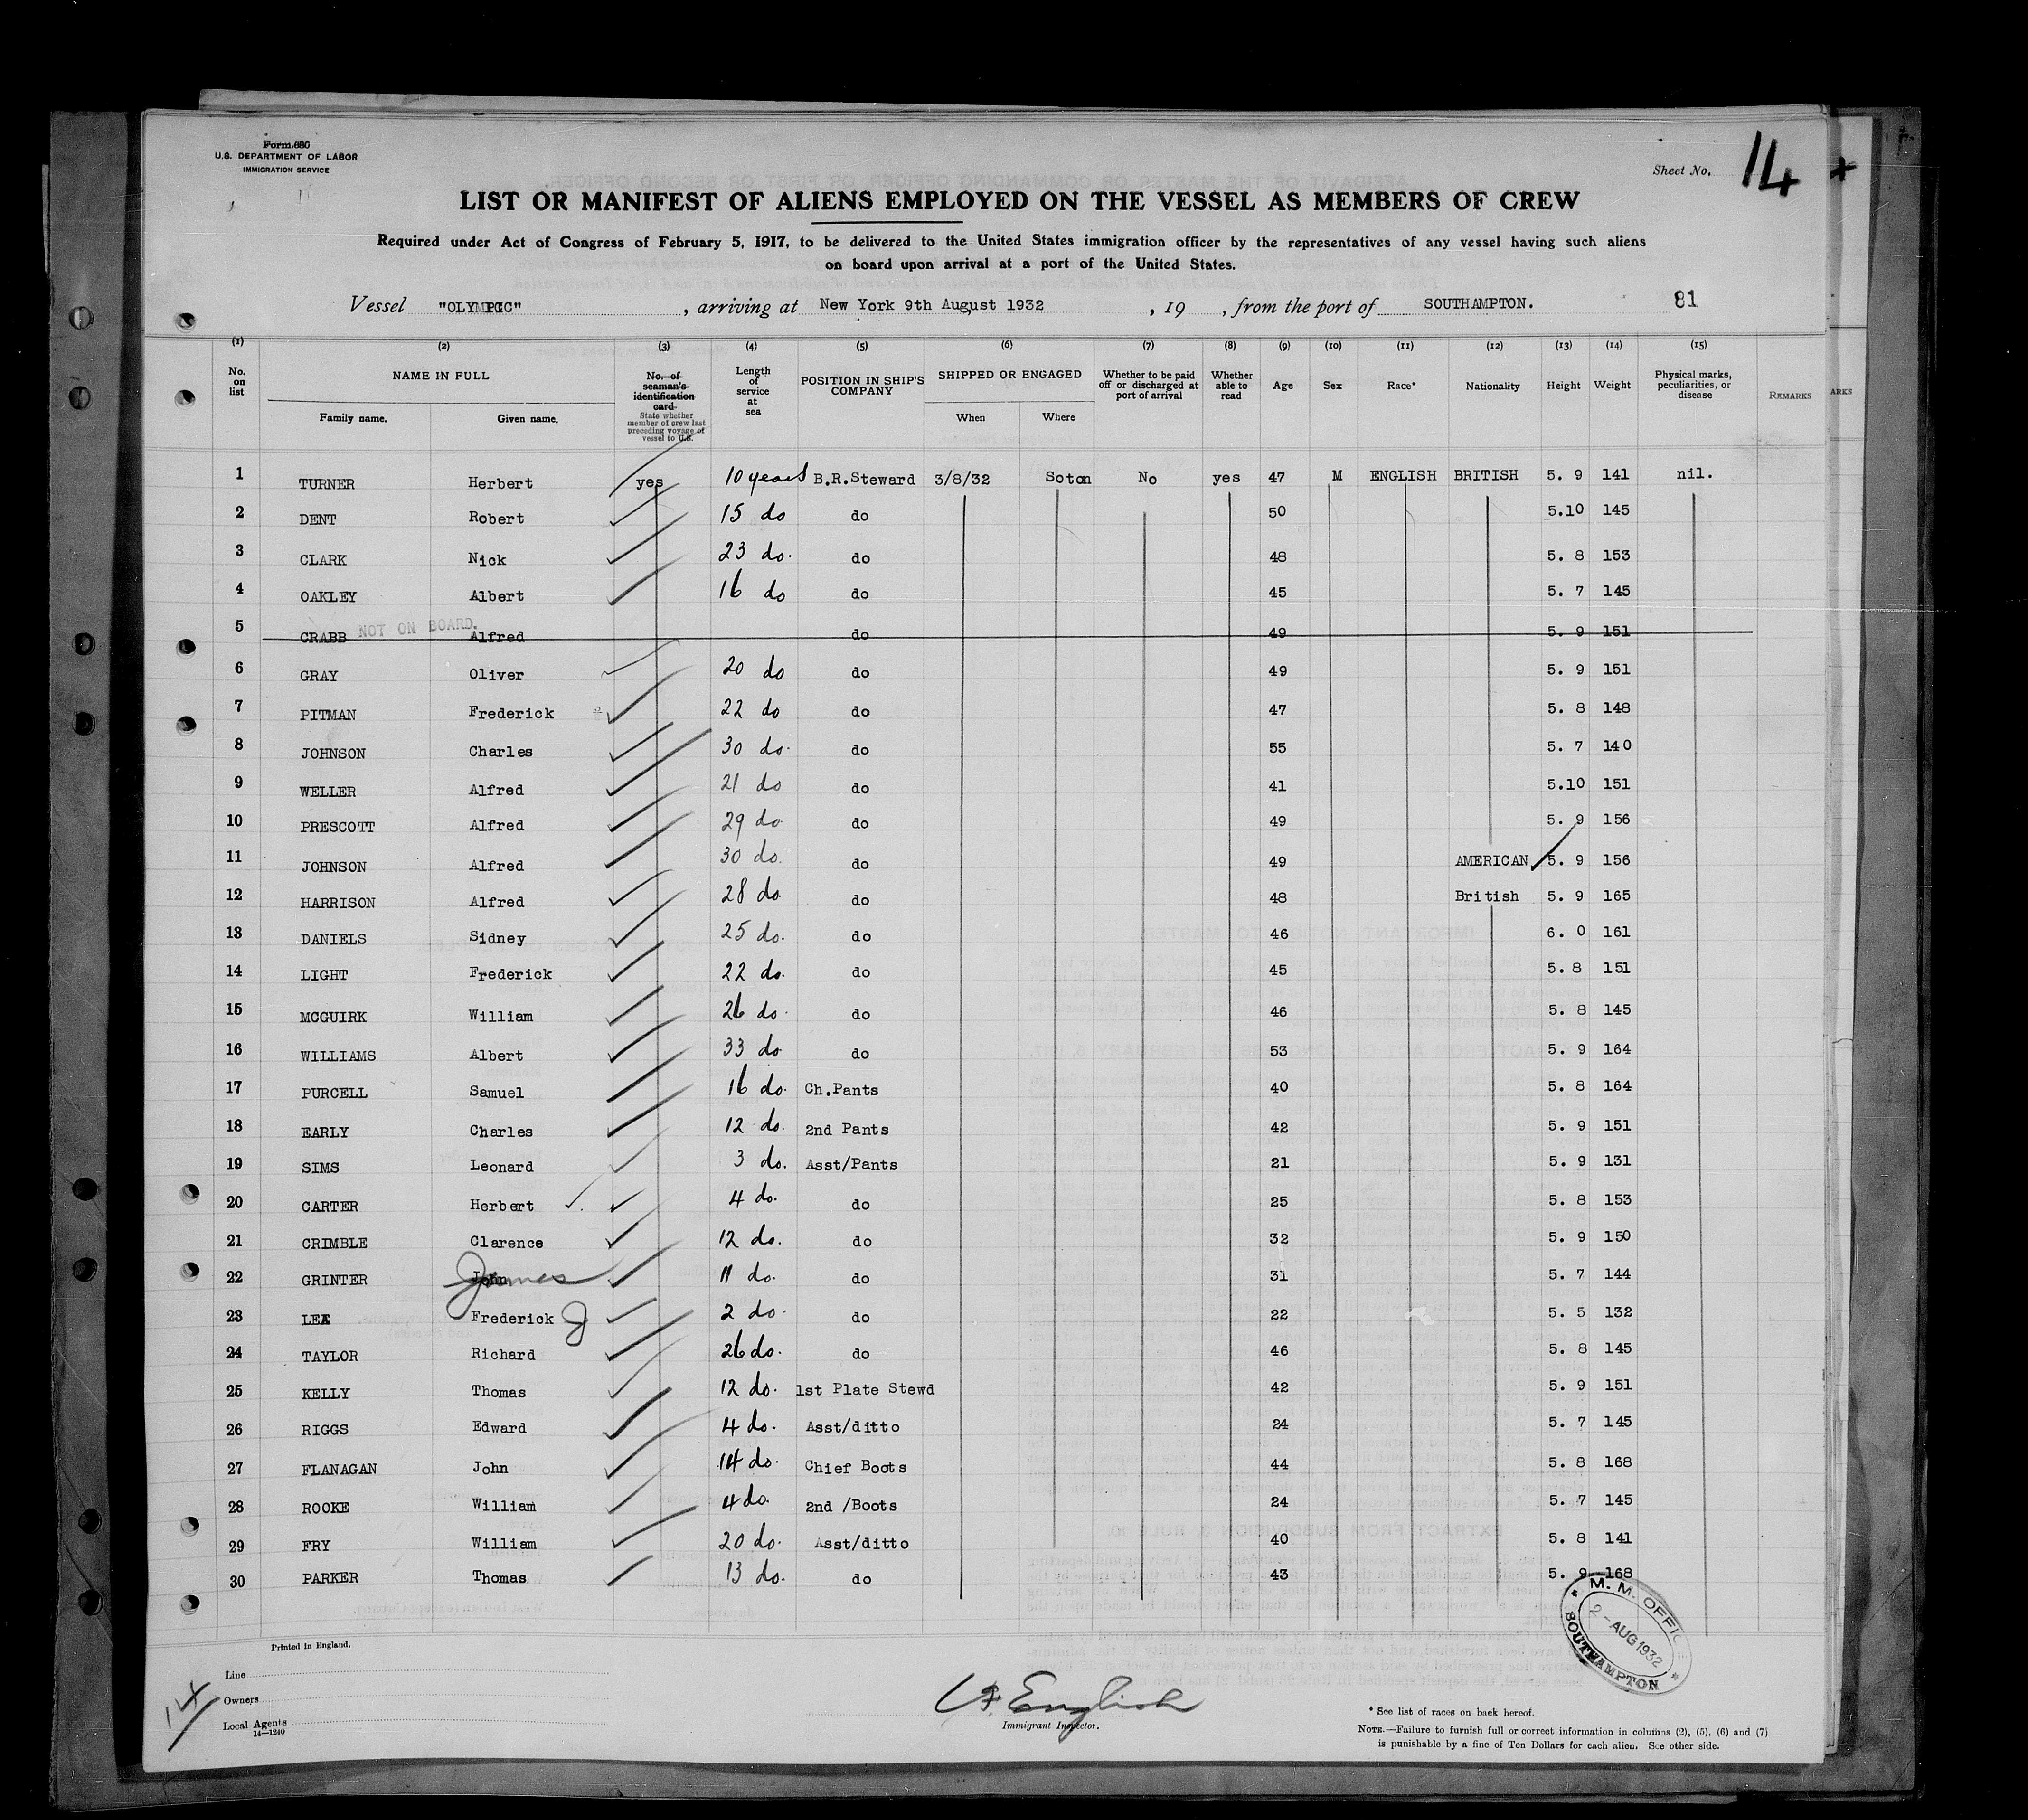 Form 680
U.S. DEPARTMENT OF LABOR
IMMIGRATION SERVICE
Sheet No. 14
LIST OR MANIFEST OF ALIENS EMPLOYED ON THE VESSEL AS MEMBERS OF CREW
Required under Act of Congress of February 5, 1917, to be delivered to the United States immigration officer by the representatives of any vessel having such aliens
on board upon arrival at a port of the United States.
Vessel "OLYMPIC", arriving at New York 9th August 1932, 19 , from the port of SOUTHAMPTON. 81
(1) (2) (3) (4) (5) (6) (7) (8) (9) (10) (11) (12) (13) (14) (15)
No. on list NAME IN FULL Family name. Given name. No. of seaman's identification card State whether member of crew last preceding voyage of vessel to U.S. Length of service at sea POSITION IN SHIP'S COMPANY SHIPPED OR ENGAGED When Where Whether to be paid off or discharged at port of arrival Whether able to read Age Sex Race* Nationality Height Weight Physical marks, peculiarities, or disease REMARKS ARKS
1 TURNER Herbert yes 10 years B.R.Steward 3/8/32 Soton No yes 47 M ENGLISH BRITISH 5. 9 141 nil.
2 DENT Robert 15 do do 50 5.10 145
3 CLARK Nick 23 do. do 48 5. 8 153
4 OAKLEY Albert 16 do do 45 5. 7 145
5 CRABB NOT ON BOARD. Alfred do 49 5. 9 151
6 GRAY Oliver 20 do do 49 5. 9 151
7 PITMAN Frederick 22 do do 47 5. 8 148
8 JOHNSON Charles 30 do. do 55 5. 7 140
9 WELLER Alfred 21 do do 41 5.10 151
10 PRESCOTT Alfred 29 do do 49 5. 9 156
11 JOHNSON Alfred 30 do. do 49 AMERICAN 5. 9 156
12 HARRISON Alfred 28 do do 48 British 5. 9 165
13 DANIELS Sidney 25 do. do 46 6. 0 161
14 LIGHT Frederick 22 do. do 45 5. 8 151
15 MCGUIRK William 26 do. do 46 5. 8 145
16 WILLIAMS Albert 33 do do 53 5. 9 164
17 PURCELL Samuel 16 do. Ch.Pants 40 5. 8 164
18 EARLY Charles 12 do. 2nd Pants 42 5. 9 151
19 SIMS Leonard 3 do. Asst/Pants 21 5. 9 131
20 CARTER Herbert 4 do. do 25 5. 8 153
21 CRIMBLE Clarence 12 do. do 32 5. 9 150
22 GRINTER John James 11 do. do 31 5. 7 144
23 LEA Frederick J 2 do. do 22 5. 5 132
24 TAYLOR Richard 26 do. do 46 5. 8 145
25 KELLY Thomas 12 do. 1st Plate Stewd 42 5. 9 151
26 RIGGS Edward 4 do. Asst/ditto 24 5. 7 145
27 FLANAGAN John 14 do. Chief Boots 44 5. 8 168
28 ROOKE William 4 do. 2nd /Boots 24 5. 7 145
29 FRY William 20 do. Asst/ditto 40 5. 8 141
30 PARKER Thomas 13 do. do 43 5. 9 168
M. M. OFFICE
2 - AUG 1932
SOUTHAMPTON
Printed in England.
Line
Owners
Local Agents
14—1240
14
English
Immigrant Inspector.
* See list of races on back hereof.
NOTE.—Failure to furnish full or correct information in columns (2), (5), (6) and (7)
is punishable by a fine of Ten Dollars for each alien. See other side.